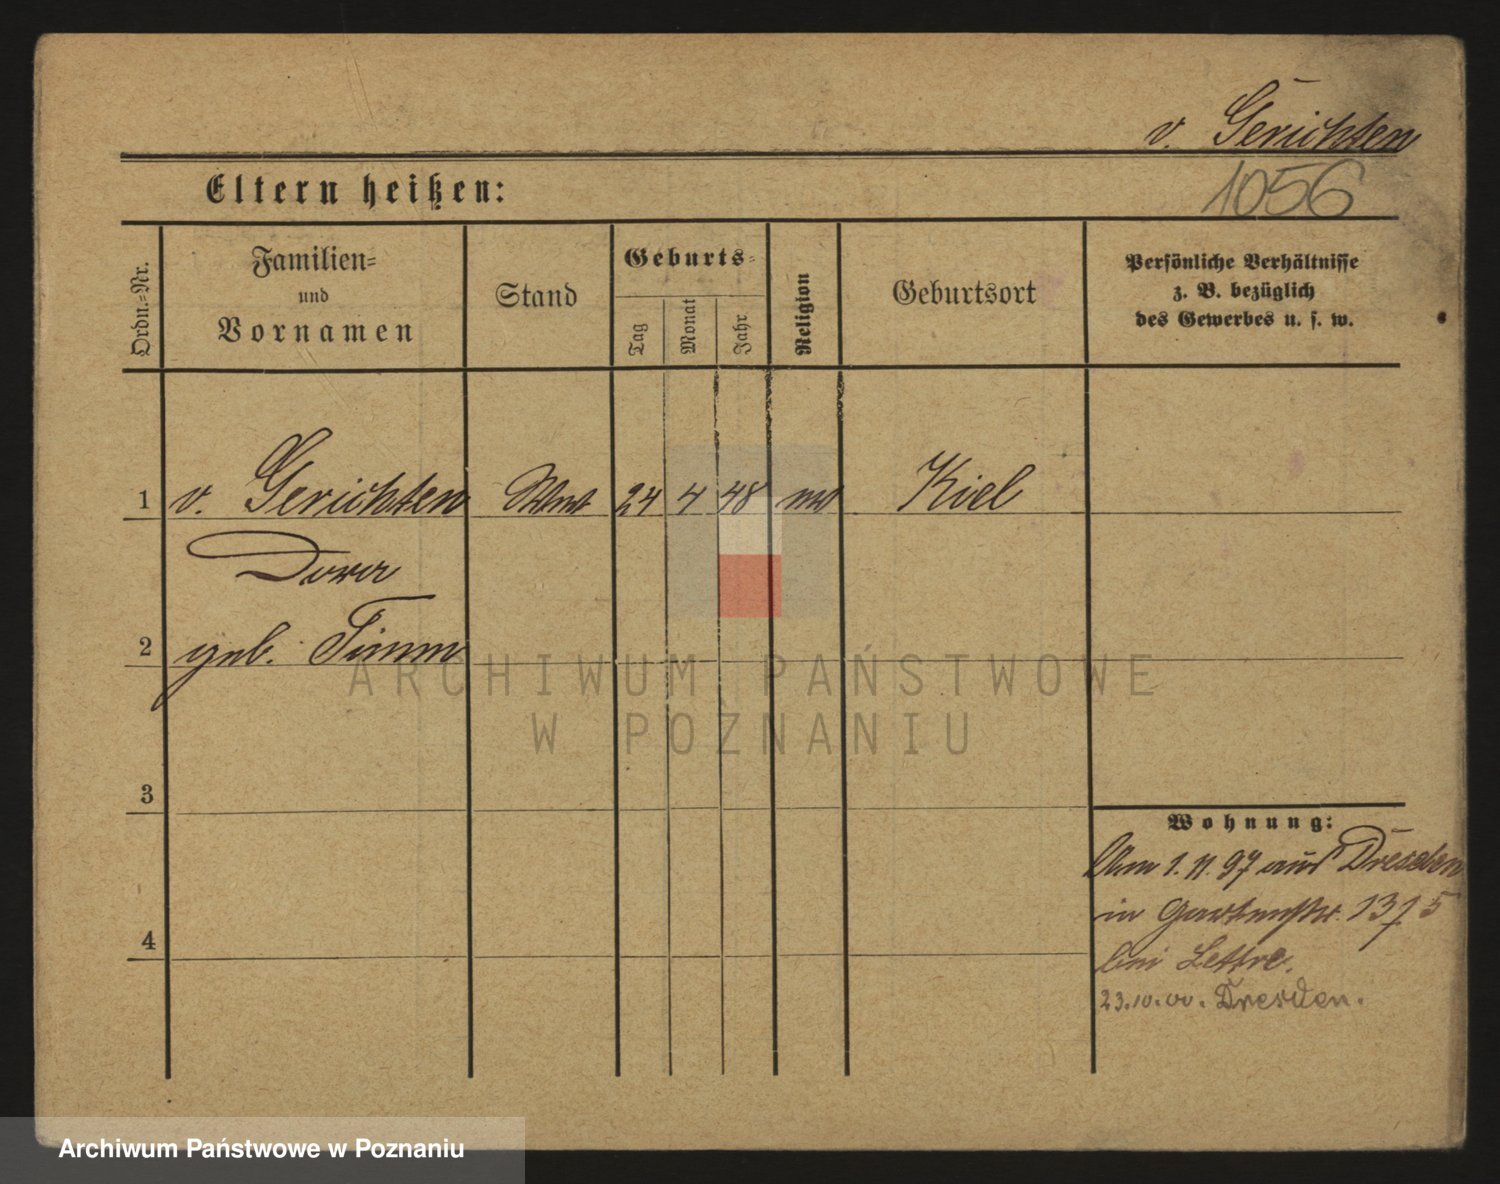 v. Gerichten
1056
Eltern heißen:
Ordn.-Nr.
Familien-
und
Vornamen
Stand
Geburts-
Tag
Monat
Jahr
Religion
Geburtsort
Persönliche Verhältnisse
z. B. bezüglich
des Gewerbes u. s. w.
1 v. Gerichten Wwe 24 4 48 Kiel
Dora
2 geb. Timm
3
4
Wohnung:
Am 1. 11. 97 aus Dresden
in Gartenstr.
bei
23.10.00. Dresden.
ARCHIWUM PAŃSTWOWE
W POZNANIU
Archiwum Państwowe w Poznaniu